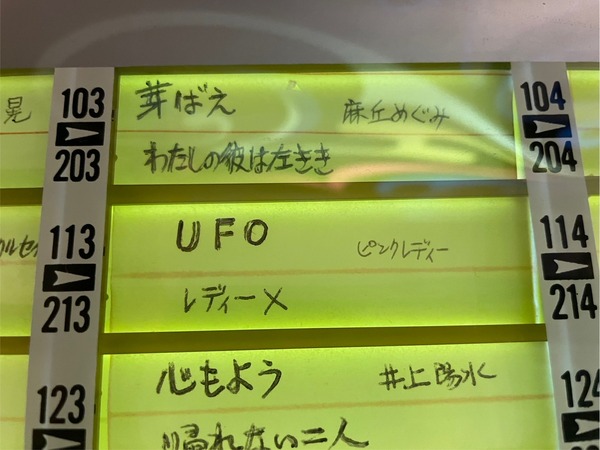 晃
103
203
芽ばえ 麻丘めぐみ
わたしの彼は左きき
104
204
113
213
UFO ピンクレディー
レディーX
114
214
123
心もよう 井上陽水
帰れない二人
124